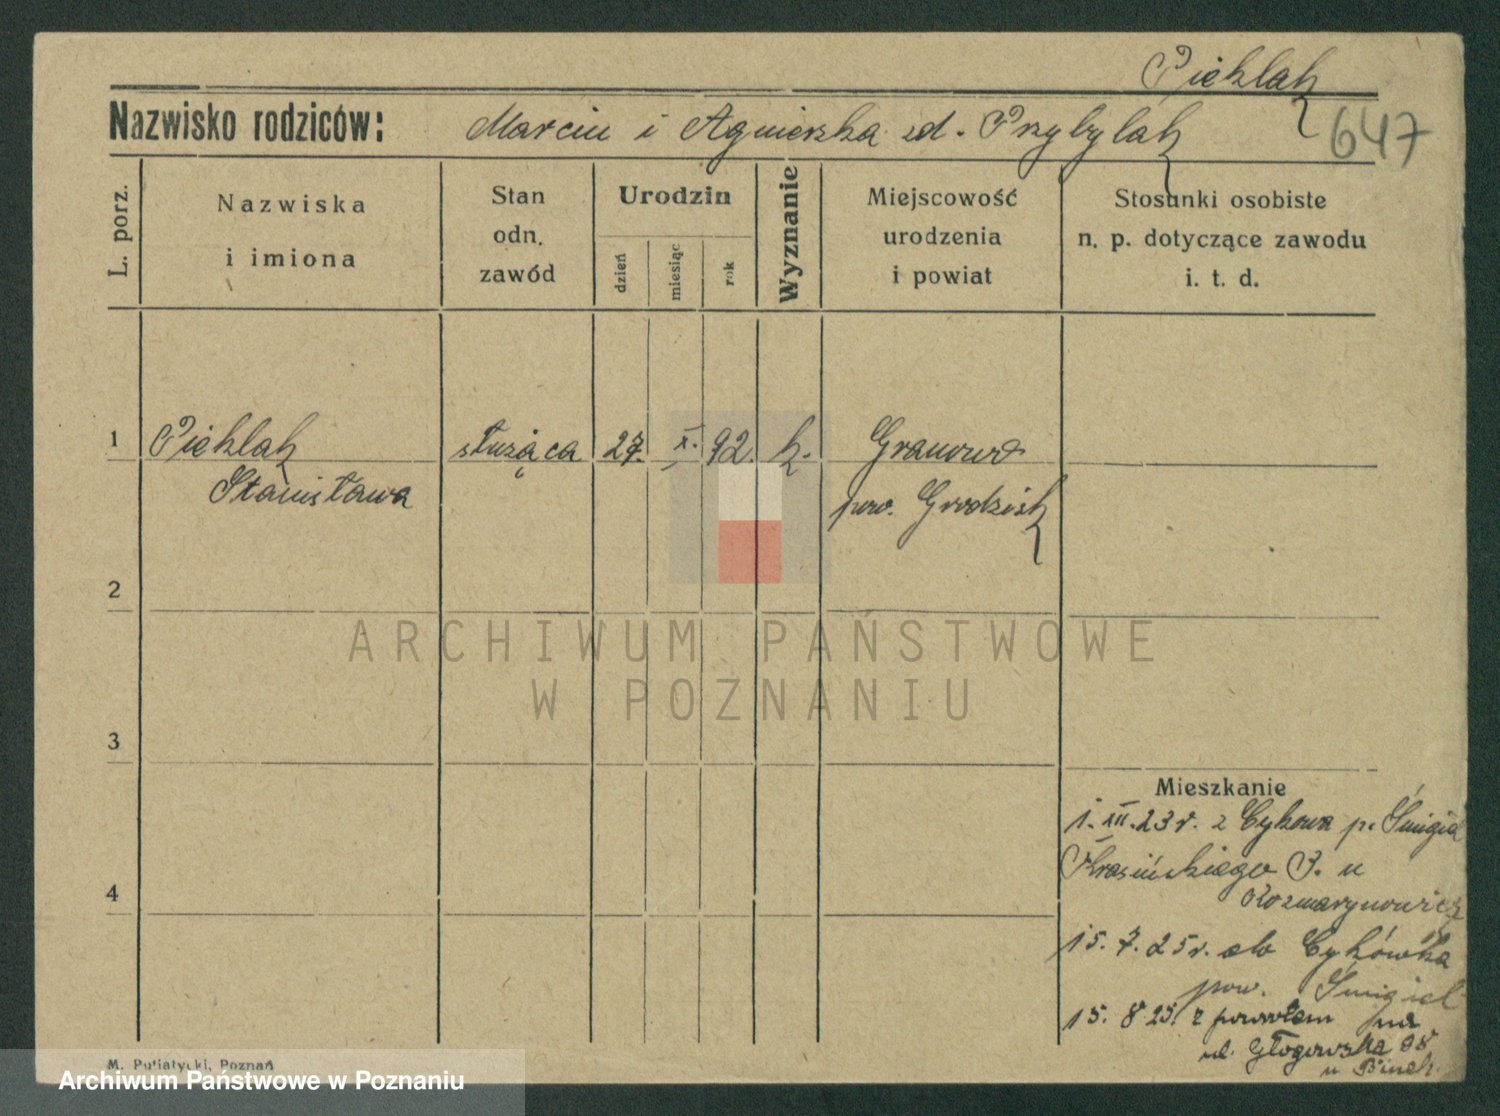 Piechlak
Nazwisko rodziców: Marcin i Agnieszka zd. Przybylak
647
L. porz.
Nazwiska
i imiona
Stan
odn.
zawód
Urodzin
dzień
miesiąc
rok
Wyznanie
Miejscowość
urodzenia
i powiat
Stosunki osobiste
n. p. dotyczące zawodu
i. t. d.
1 Piechlak służąca 27. X. 92. k. Granowo
Stanisława pow. Grodzisk
2
ARCHIWUM PAŃSTWOWE
W POZNANIU
3
Mieszkanie
1. III. 23 r. z Cykowa p. Śmigiel
Krasińskiego 3. u
Rozmarynowicz
4
15. 7. 25 r. do Cykówka
pow. Śmigiel
15. 8 25. z powrotem na
ul. Głogowska 98
u
M. Putiatycki, Poznań
Archiwum Państwowe w Poznaniu